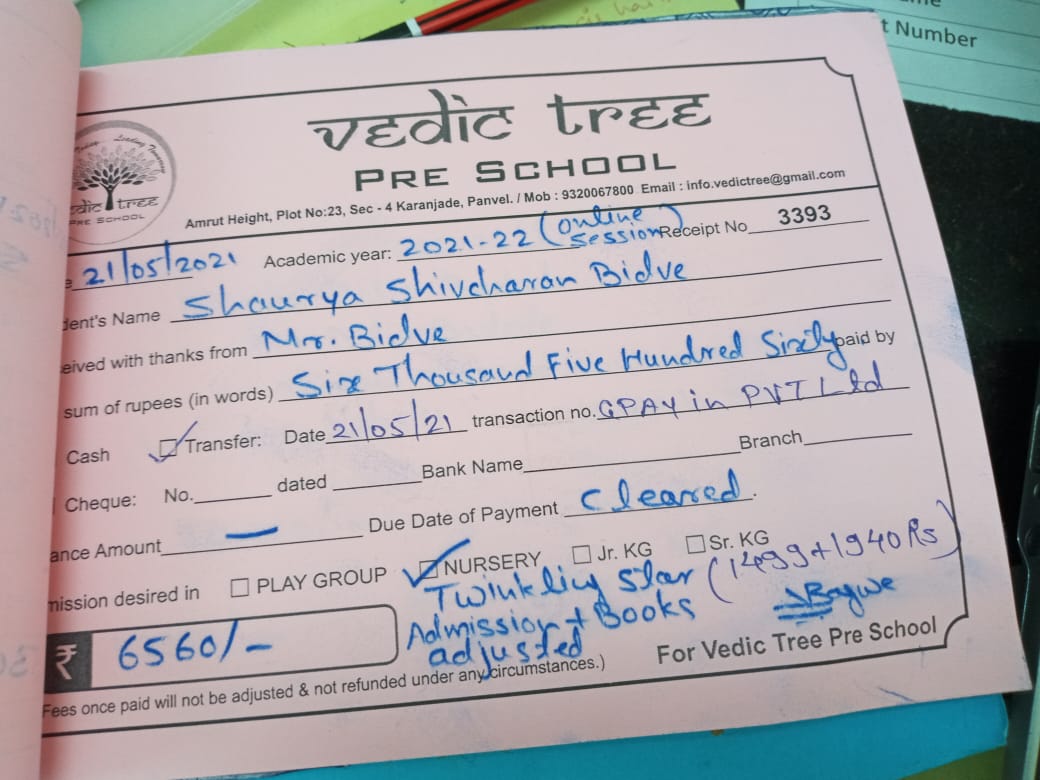 t Number
vedic tree
PRE SCHOOL
Amrut Height, Plot No:23, Sec - 4 Karanjade, Panvel. / Mob : 9320067800 Email : info.vedictree@gmail.com
dic tree
PRE SCHOOL
e 21/05/2021 Academic year: 2021-22 (online session) Receipt No 3393
dent's Name Shaurya Shivcharan Bidve
eived with thanks from Mr. Bidve
sum of rupees (in words) Six Thousand Five Hundred Sixty paid by
Cash Transfer: Date 21/05/21 transaction no. GPAY in PVT Ltd
Cheque: No. dated Bank Name Branch
ance Amount — Due Date of Payment cleared.
mission desired in PLAY GROUP NURSERY Jr. KG Sr. KG
Twinkling Star (1499+1940 Rs)
Admission + Books
adjusted
₹ 6560/-
Bagwe
For Vedic Tree Pre School
Fees once paid will not be adjusted & not refunded under any circumstances.)